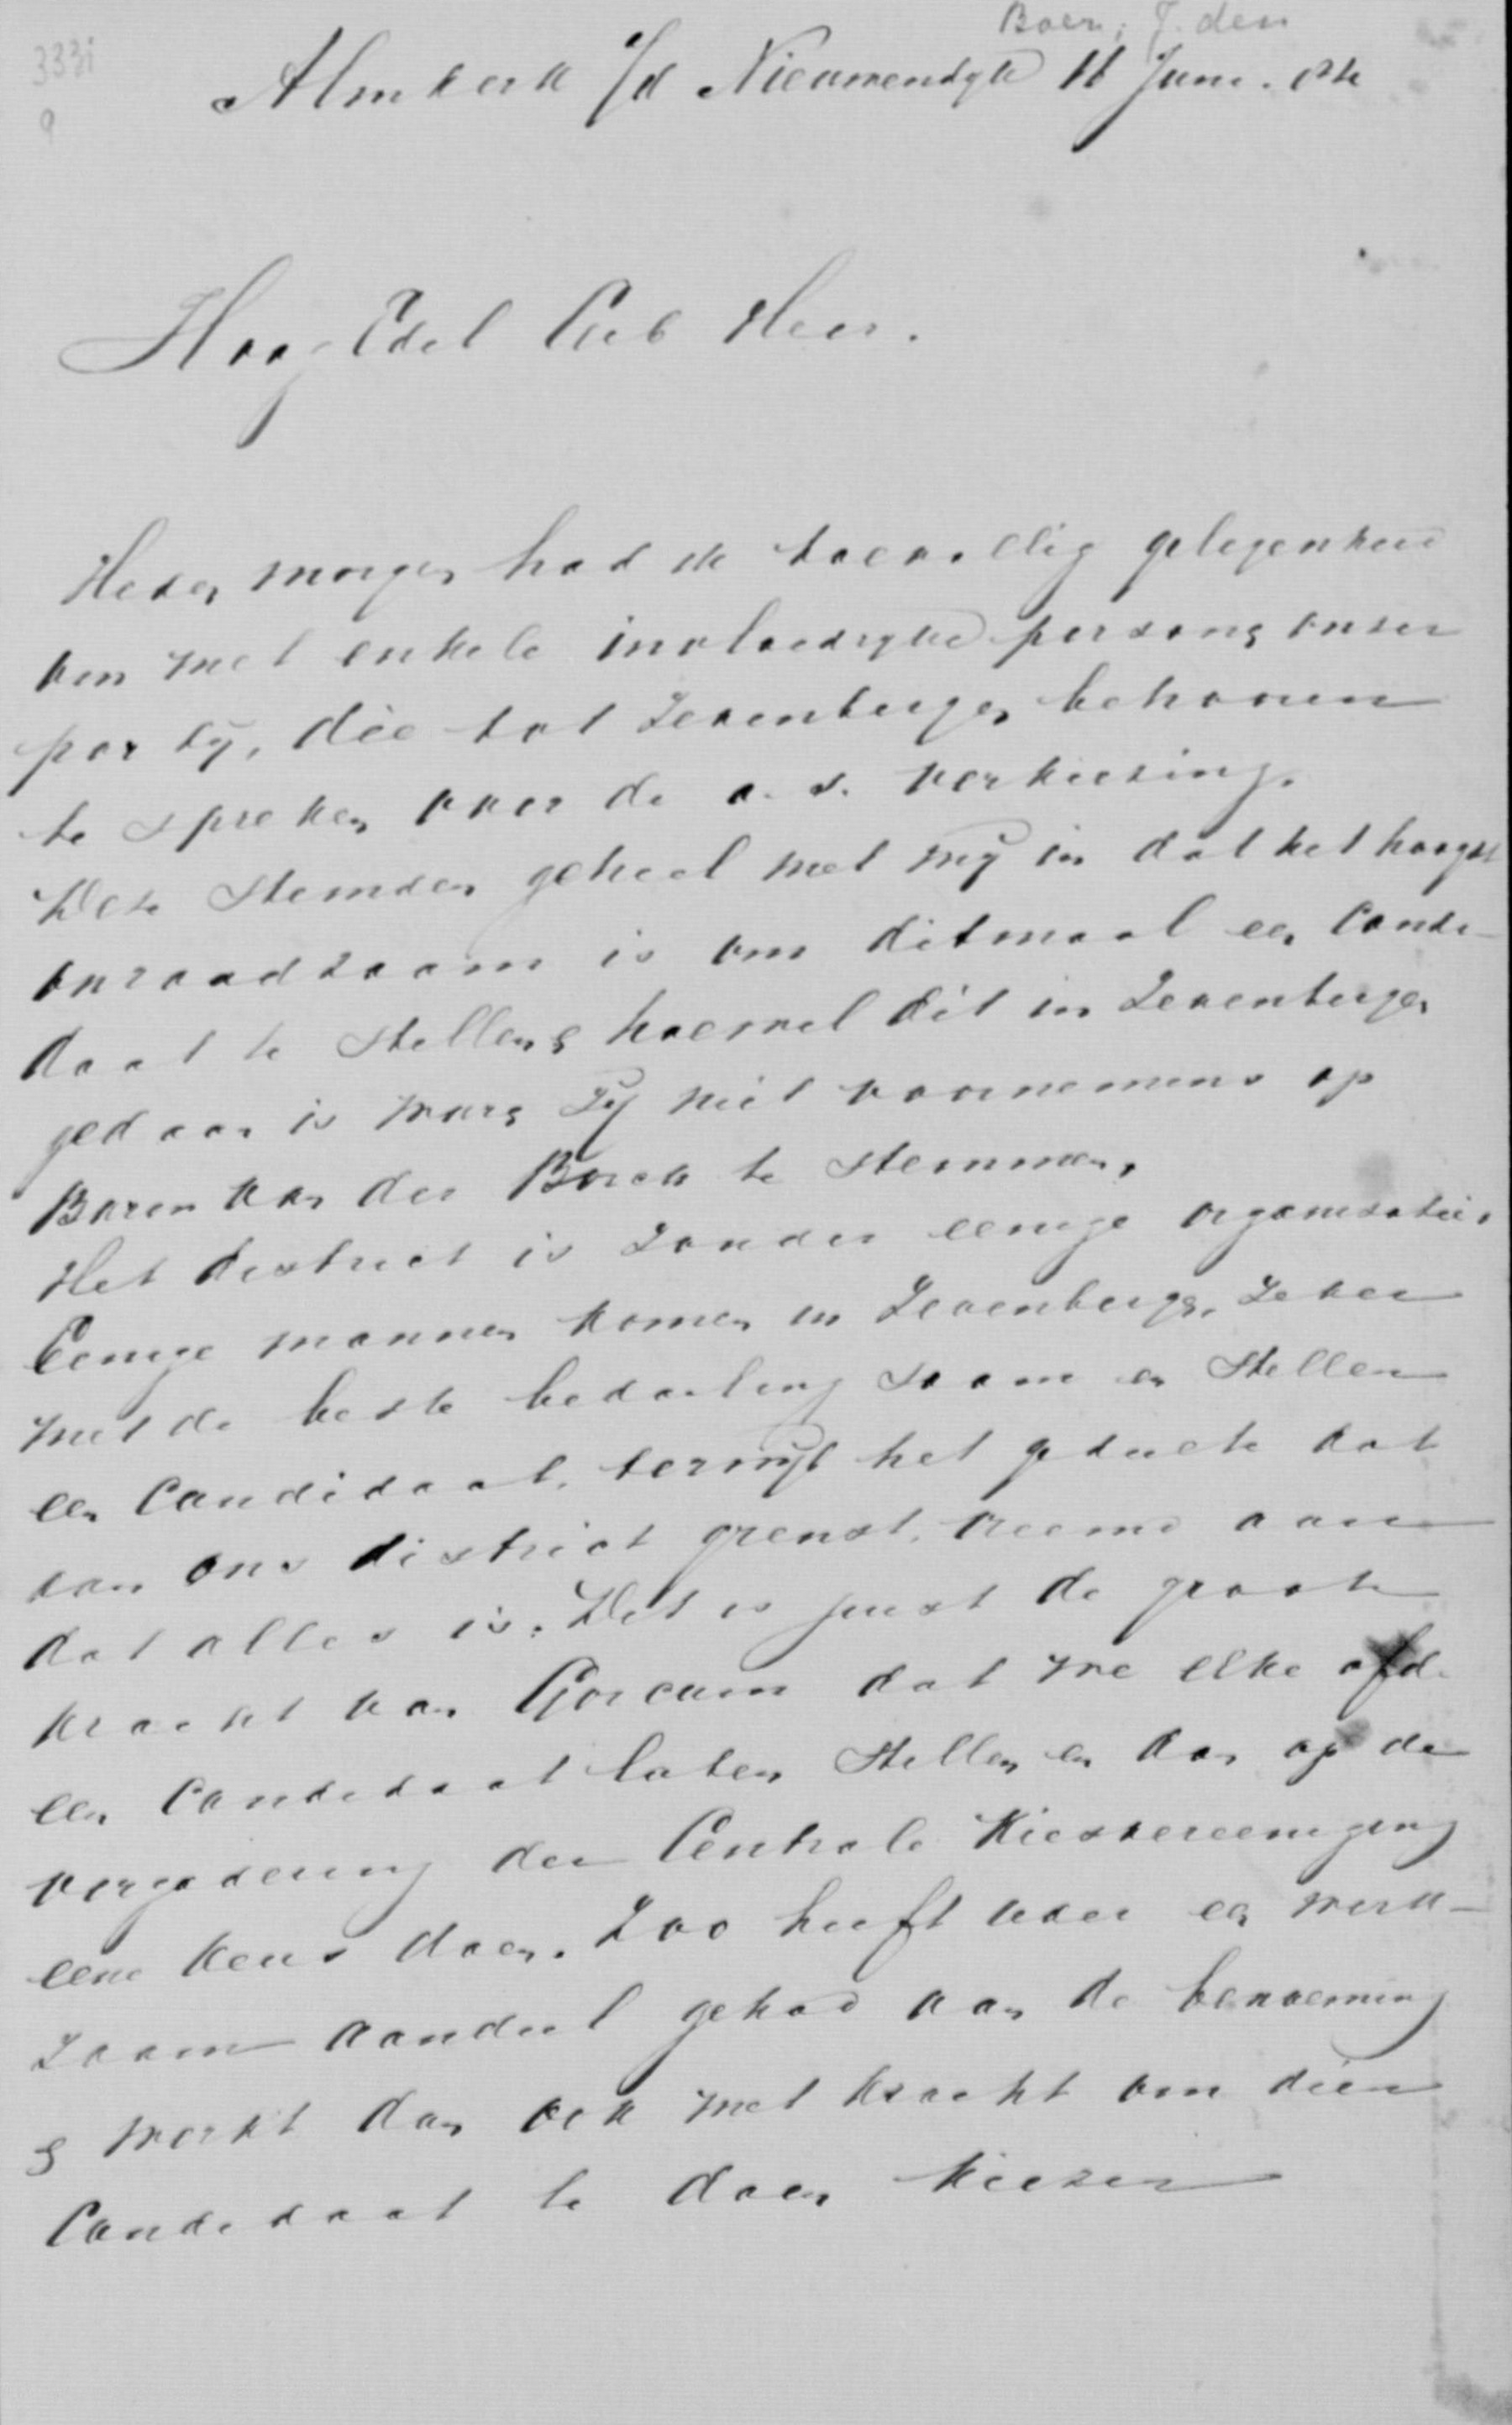 Boer, J. den
333i
9
Almkerk a/d Nieuwendijk 11 Juni.
Hoog Edel Geb Heer.
Heden morgen had ik toevallig gelegenheid
om met enkele invloedrijke persons onzer
partij, die tot Zevenbergen behooren
te spreken over de a. s. verkiezing.
Deze stemden geheel met mij in dat het hoogst
onraadzaam is om ditmaal een Candi-
daat te stellen & hoewel dit in Zevenbergen
gedaan is ware zij niet voornemens op
Baron van der Borch te stemmen,
Het district is zonder eenige organisatie.
Eenige mannen komen in Zevenbergen zeker
met de beste bedoeling saam en stellen
een Candidaat, terwijl het gedeelte dat
aan ons district grenst, vreemd aan
dat alles is. Dit is juist de groote
kracht van Gorcum dat we elke afd.
een Candidaat laten stellen en dan op de
vergadering der Centrale Kiesvereeniging
eene keus doen. Zoo heeft ieder een werk-
zaam aandeel gehad aan de benoeming
& werkt dan ook met kracht om dien
Candidaat te doen kiezen